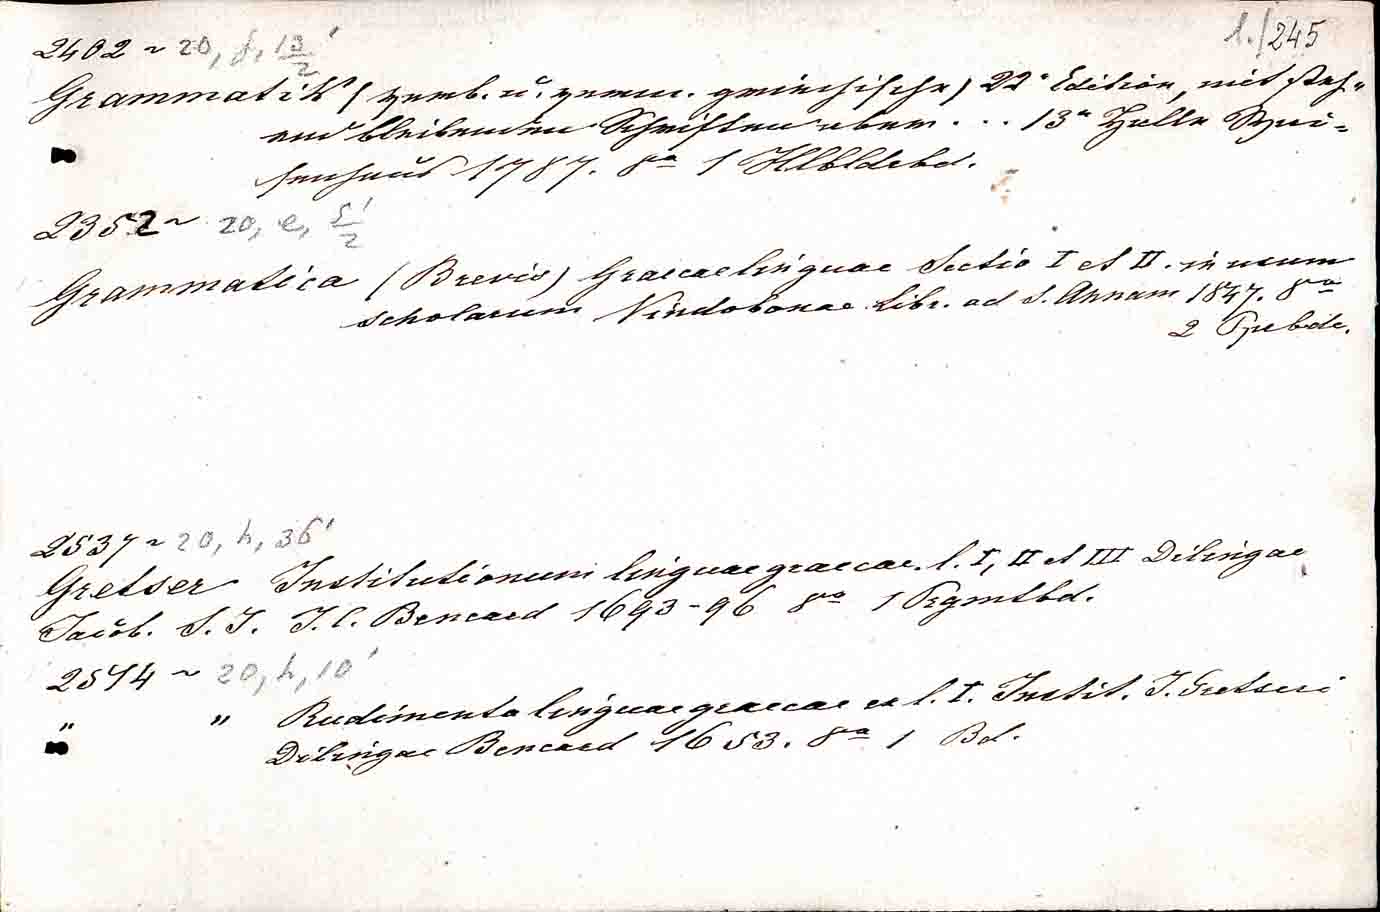 1./245
2402 ~ 20, f, 13/2'
Grammatik (verb. u. verm. griechische) 22e Edition, mit steh-
end bleibenden Schriften aber ... 13e Halle Wai-
senhaus 1787. 8o 1 Hlbldrbd.
2352 ~ 20, e, 5/2'
Grammatica (Brevis) Graecae linguae Sectio I et II. in usum
scholarum Vindobonae Libr. ad S. Annam 1847. 8o
2 Ppebde.
2537 ~ 20, h, 36'
Gretser Institutionum linguae graecae. l. I, II et III Dilingae
Jacob. S. J. J. C. Bencard 1693-96 8o 1 Prgmtbd.
2574 ~ 20, h, 10'
" " Rudimenta linguae graecae ex l. I. Instit. J. Gretseri
Dilingae Bencard 1653. 8o 1 Bd.